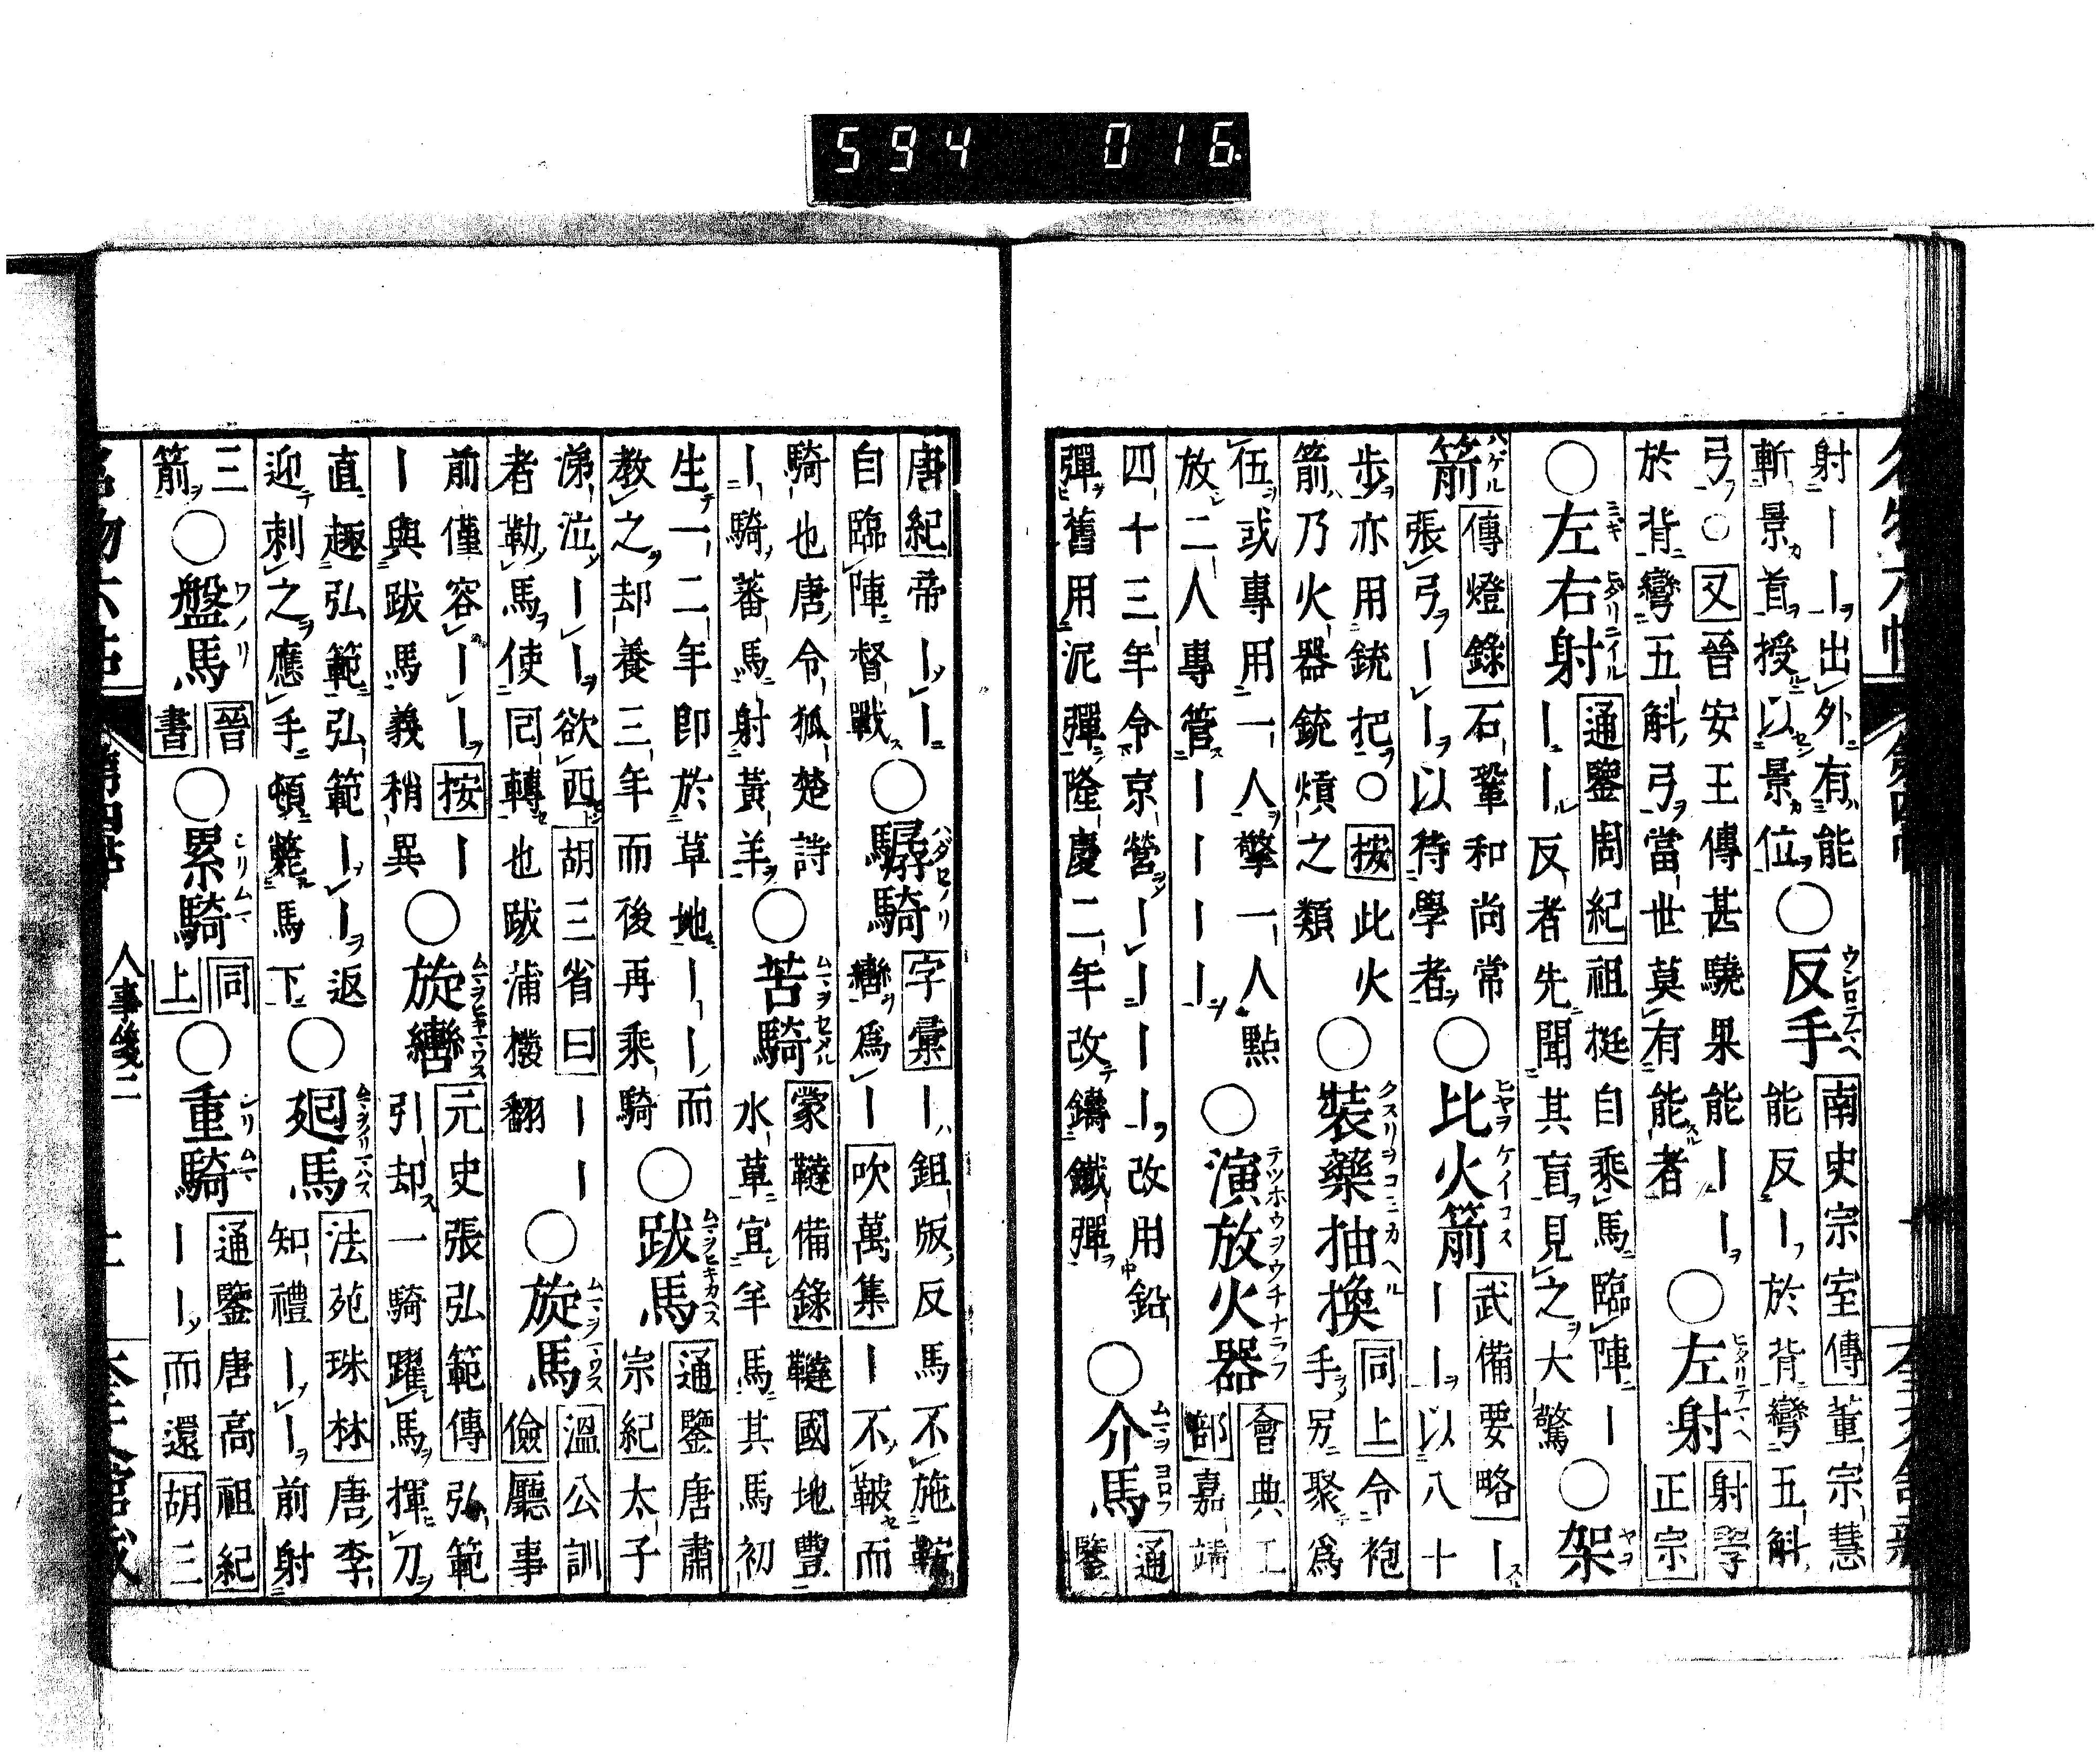 594 016
射ーー出外有能
斬景首授以景位
○反手
南史宗室傳董宗慧
能反ー於背彎五斛
弓○又晉安王傳甚驍果能ーー
於背彎五斛弓當世莫有能者
○左射
射學
正宗
○左右射
通鑒周紀祖挺自乘馬臨陣ー
ーー反者先聞其盲見之大驚
○架
箭
傳燈錄石鞏和尚常
張弓ーー以待學者
○比火箭
武備要略ー
ーー以八十
步亦用銃把○按此火
箭乃火器銃熕之類
○裝藥抽換
同上令袍
手另聚爲
伍或專用一人擎一人點
放二人專管ーーーー
○演放火器
會典工
部嘉靖
四十三年令京營ーーーー改用鉛
彈舊用泥彈隆慶二年改鑄鐵彈
○介馬
通
鑒
唐紀帝ーー
自臨陣督戰
○驏騎
字彙ー鉏版反馬不施鞍
轡爲ー吹萬集ー不鞁而
騎也唐令狐楚詩
ー騎蕃馬射黃羊
○苦騎
蒙韃備錄韃國地豐
水草宜羊馬其馬初
生一二年即於草地ーー而
教之却養三年而後再乘騎
○跋馬
通鑒唐肅
宗紀太子
涕泣ーー欲西胡三省曰ーー
者勒馬使回轉也跋蒲撥翻
○旋馬
溫公訓
儉廳事
前僅容ーー按ー
ー與跋馬義稍異
○旋轡
元史張弘範傳弘範
引却一騎躍馬揮刀
直趣弘範弘範ーー返
迎刺之應手頓斃馬下
○廻馬
法苑珠林唐李
知禮ーー前射
三
箭
○盤馬
晉
書
○累騎
同
上
○重騎
通鑒唐高祖紀
ーー而還胡三
名物六帖 第四帖 人事後二 十一 奎文舘藏